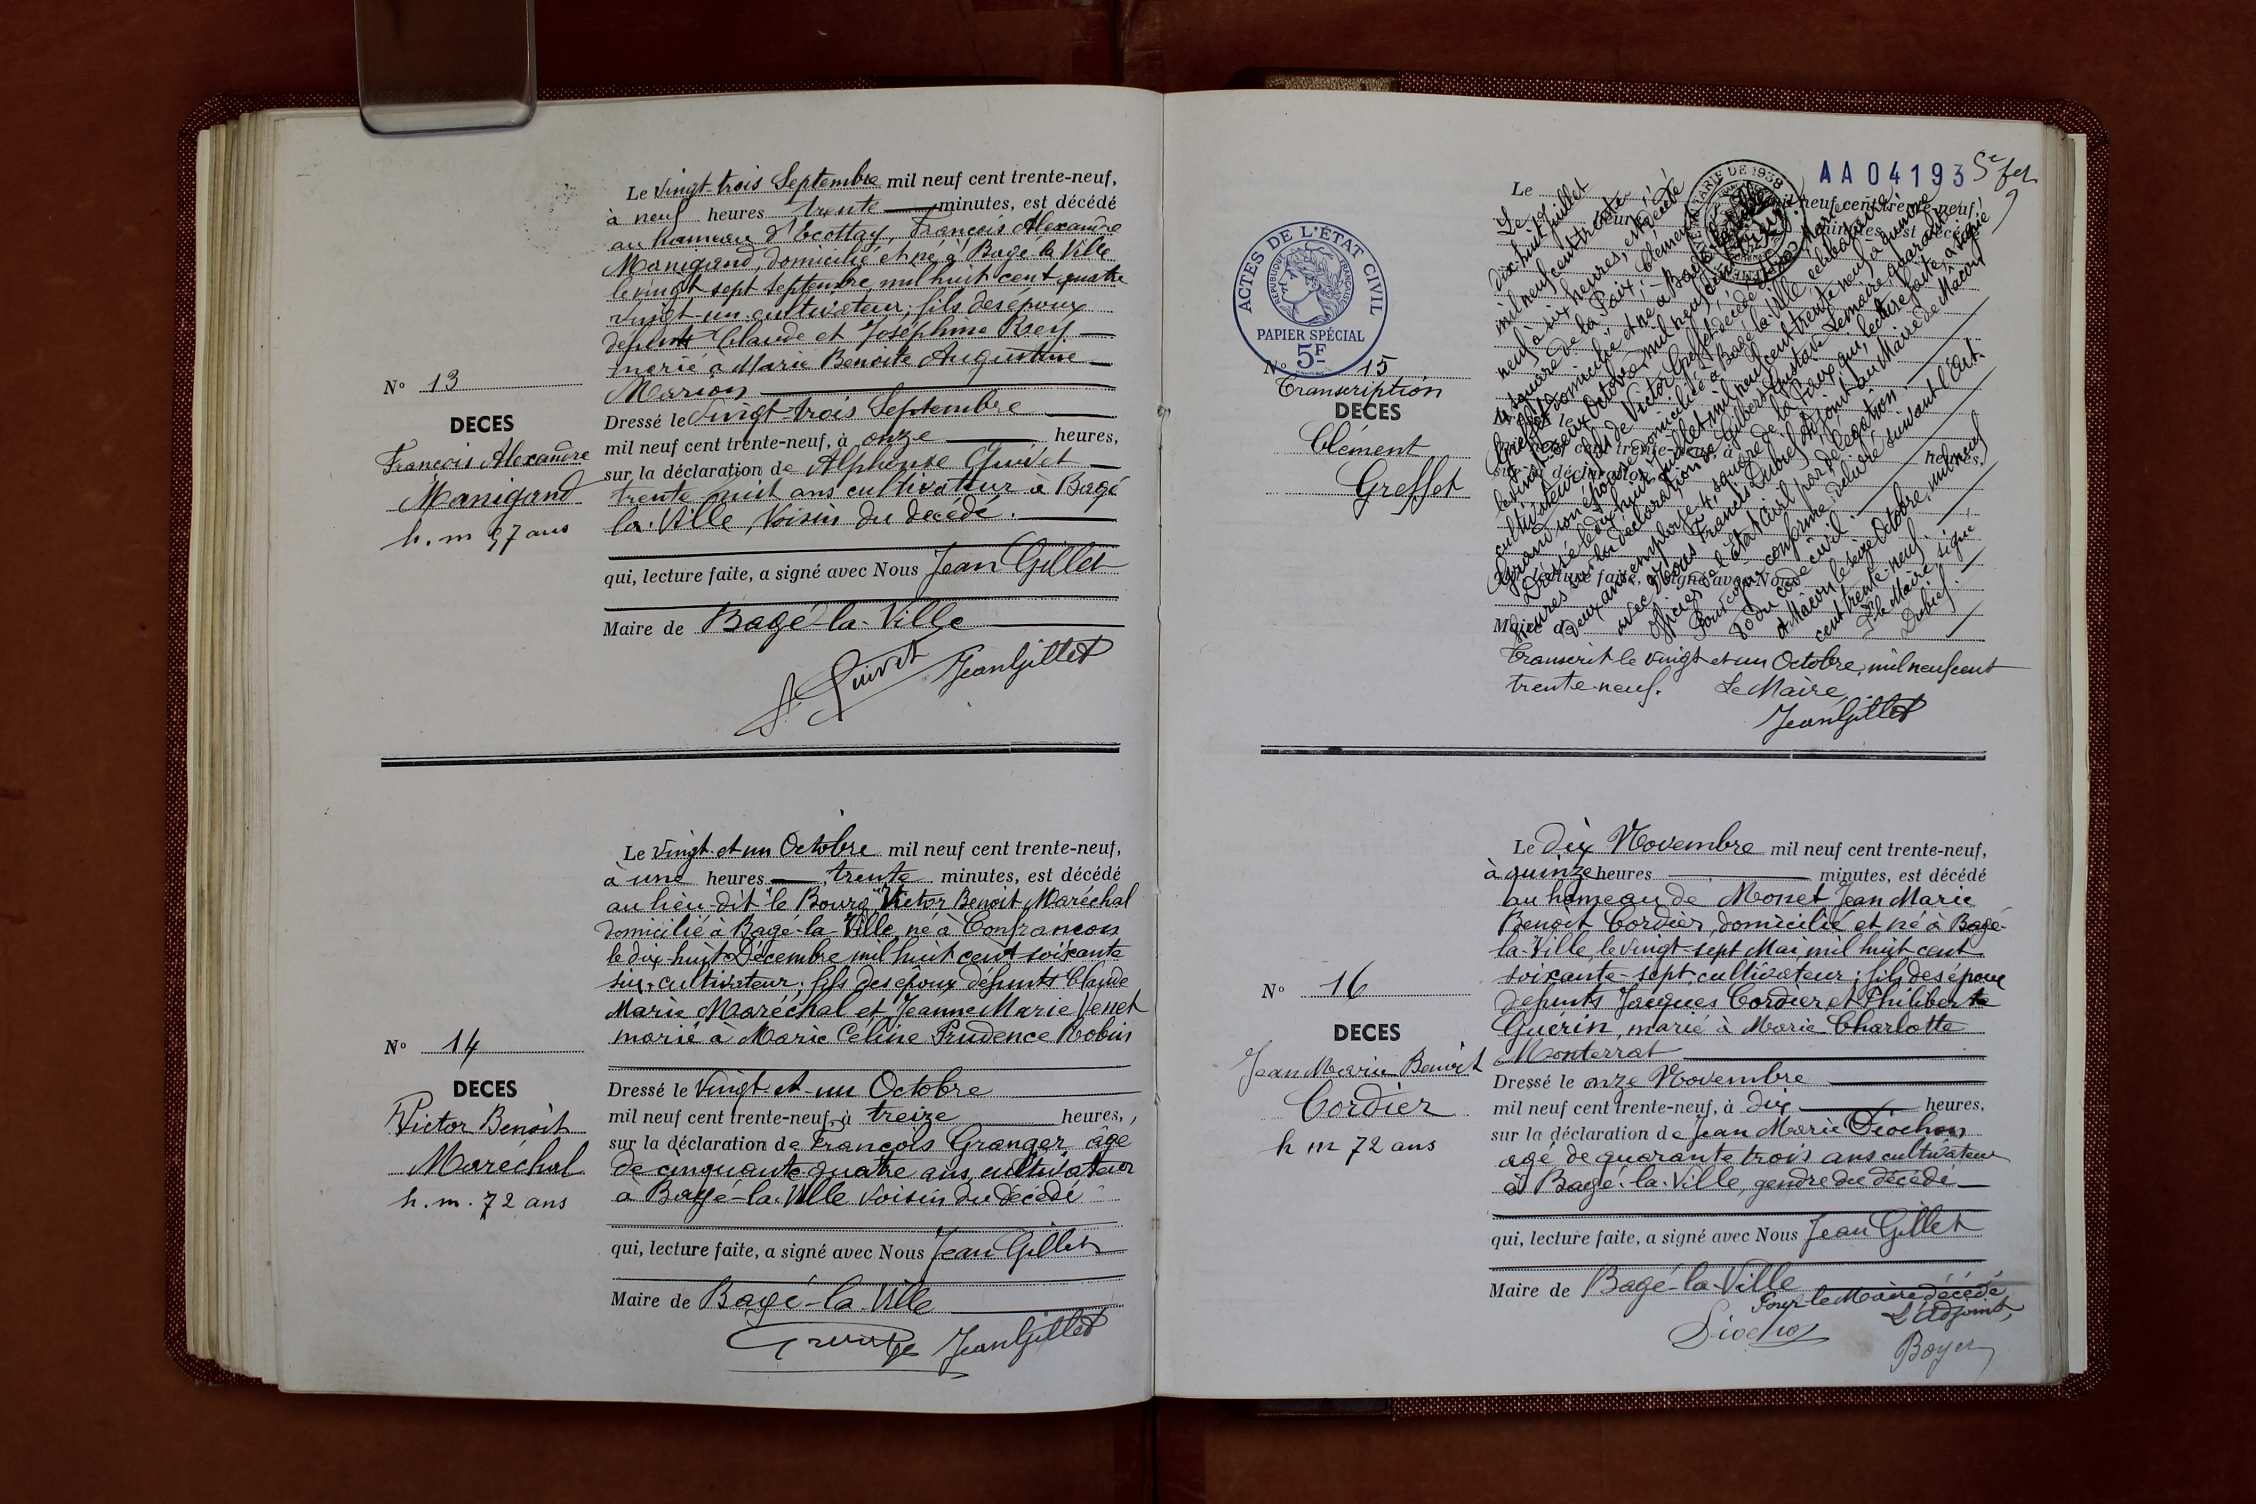 Le Vingt-trois Septembre mil neuf cent trente-neuf,
à neuf heures trente minutes, est décédé
au hameau d'Ecottay, François Alexandre
Manigand, domicilié et né à Bagé la Ville
le vingt sept septembre mil huit cent quatre
vingt-un cultivateur, fils des époux
défunts Claude et Joséphine Rey
marié à Marie Benoite Augustine
Marion
N° 13
DECES
François Alexandre
Manigand
h. m 57 ans
Dressé le Vingt-trois Septembre
mil neuf cent trente-neuf, à onze heures,
sur la déclaration de Alphonse Guivet
trente huit ans cultivateur à Bagé
la-Ville, Voisin du décédé.
qui, lecture faite, a signé avec Nous Jean Gillet
Maire de Bagé-la-Ville
A. Guivet Jean Gillet
Le Vingt et un Octobre mil neuf cent trente-neuf,
à une heures trente minutes, est décédé
au lieu-dit "le Bourg" Victor Benoit Maréchal
domicilié à Bagé-la-Ville, né à Confrançon
le dix huit Décembre mil huit cent soixante
six, cultivateur; fils des époux défunts Claude
Marie Maréchal et Jeanne Marie Venet
marié à Marie Céline Prudence Robin
N° 14
DECES
Victor Benoit
Maréchal
h. m. 72 ans
Dressé le Vingt-et-un Octobre
mil neuf cent trente-neuf, à treize heures,
sur la déclaration de François Granger âgé
de cinquante-quatre ans, cultivateur
à Bagé-la-Ville voisin du décédé
qui, lecture faite, a signé avec Nous Jean Gillet
Maire de Bagé-la-Ville
Jean Gillet
AA 04193
ACTES DE L'ÉTAT CIVIL
RÉPUBLIQUE FRANÇAISE
PAPIER SPÉCIAL
5F
N° 15
Transcription
DECES
Clément
Greffet
Le
dix-huit Juillet
mil neuf cent trente
neuf à six heures, est décédé
4 square de la Paix, Clément
Greffet domicilié et né à Bagé la Ville
le vingt deux Octobre mil neuf cent
cultivateur, fils de Victor Greffet décédé et de Marie
Grandjon épouse domiciliée à Bagé-la-Ville célibataire
Dressé le dix huit Juillet mil neuf cent trente neuf à quinze
heures sur la déclaration de Gilbert Gustave Lemaire, quarante
deux ans employé 4 square de la Paix qui, lecture faite, a signé
avec Nous Francis Dubief Adjoint au Maire de Mâcon
officier de l'état civil par délégation
Pour copie conforme délivré suivant l'Art.
80 du code civil.
A Mâcon le seize Octobre, mil neuf
cent trente neuf.
P. le Maire, signé
Dubief.
Transcrit le vingt et un Octobre, mil neuf cent
trente-neuf. Le Maire,
Jean Gillet
Le dix Novembre mil neuf cent trente-neuf,
à quinze heures minutes, est décédé
au hameau de Monet Jean Marie
Benoit Cordier, domicilié et né à Bagé-
la-Ville, le vingt-sept Mai mil huit cent
soixante-sept, cultivateur; fils des époux
défunts Jacques Cordier et Philiberte
Guérin, marié à Marie Charlotte
Monterrat
N° 16
DECES
Jean Marie Benoit
Cordier
h m 72 ans
Dressé le onze Novembre
mil neuf cent trente-neuf, à dix heures,
sur la déclaration de Jean Marie Diochon
agé de quarante trois ans cultivateur
à Bagé-la-Ville, gendre du décédé
qui, lecture faite, a signé avec Nous Jean Gillet
Maire de Bagé-la-Ville
Pour le Maire décédé
L'adjoint,
Diochon
Boyer